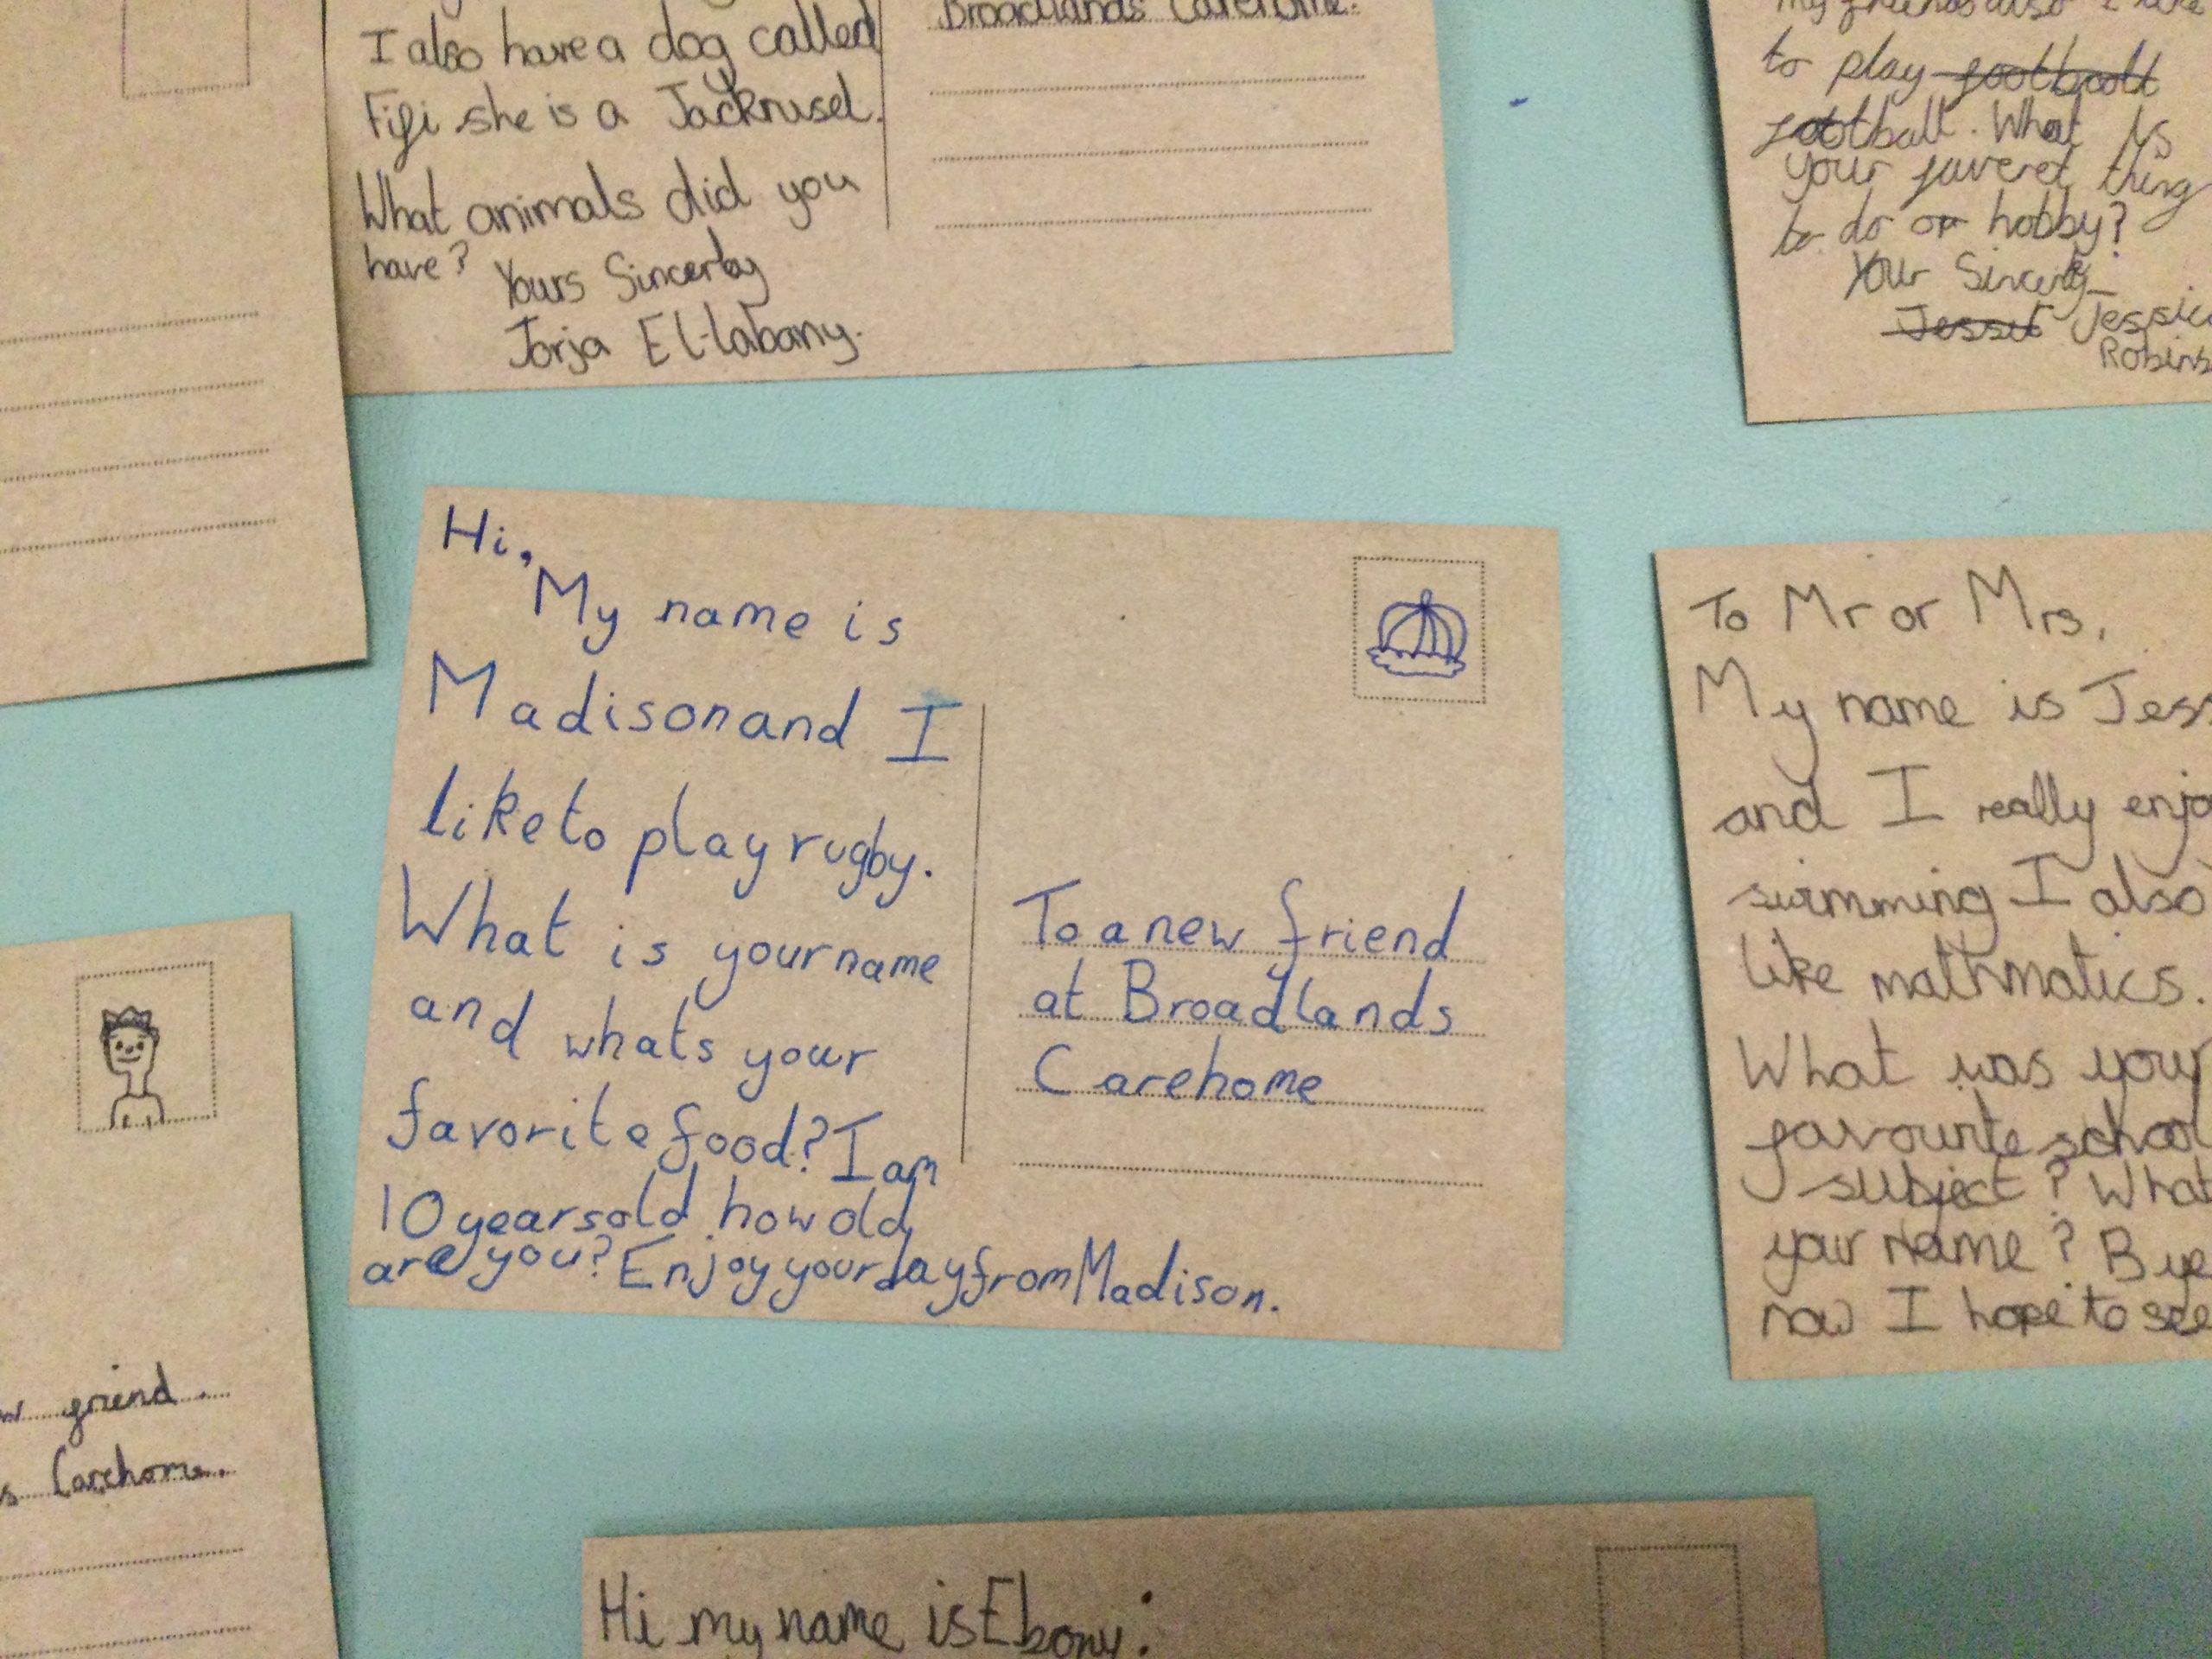 I also have a dog called
Fifi she is a Jackrusel.
What animals did you
have?
Yours Sincerley
Jorja El-labany.
Broadlands Carehome.
my friends also I like
to play football
football. What is
your faveret thing
to do or hobby?
Your Sincerly
Jessica
Hi,
My name is
Madison and I
like to play rugby.
What is your name
and whats your
favorite food? I am
10 years old how old
are you? Enjoy your day from Madison.
To a new friend
at Broadlands
Carehome
To Mr or Mrs,
My name is Jess
and I really
swimming I also
like mathmatics.
What was your
favourite school
subject? What
your name? Bye
now I hope to see
friend.
Carehome.
Hi my name is Ebony.